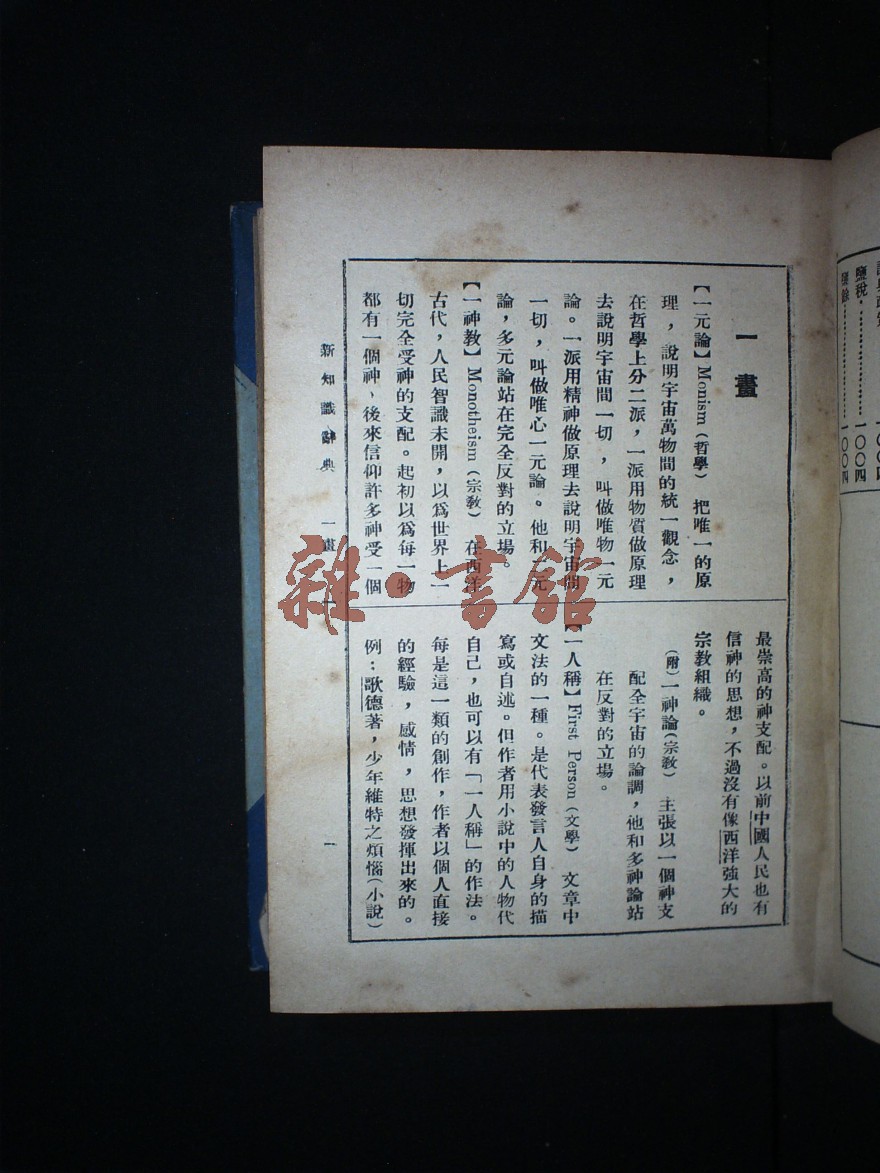 一畫
【一元論】Monism（哲學） 把唯一的原
理，說明宇宙萬物間的統一觀念，
在哲學上分二派，一派用物質做原理
去說明宇宙間一切，叫做唯物一元
論。一派用精神做原理去說明宇宙間
一切，叫做唯心一元論。他和二元
論，多元論站在完全反對的立場。
【一神教】Monotheism（宗教） 在西洋
古代，人民智識未開，以爲世界上一
切完全受神的支配。起初以爲每一物
都有一個神、後來信仰許多神受一個
最崇高的神支配。以前中國人民也有
信神的思想，不過沒有像西洋強大的
宗教組織。
（附）一神論（宗教） 主張以一個神支
配全宇宙的論調，他和多神論站
在反對的立場。
【一人稱】First Person（文學） 文章中
文法的一種。是代表發言人自身的描
寫或自述。但作者用小說中的人物代
自己，也可以有「一人稱」的作法。
每是這一類的創作，作者以個人直接
的經驗，感情，思想發揮出來的。
例：歌德著，少年維特之煩惱（小說）
新知識辭典 一畫
一
鹽稅…………………一〇〇四
一〇〇四
雜·書館